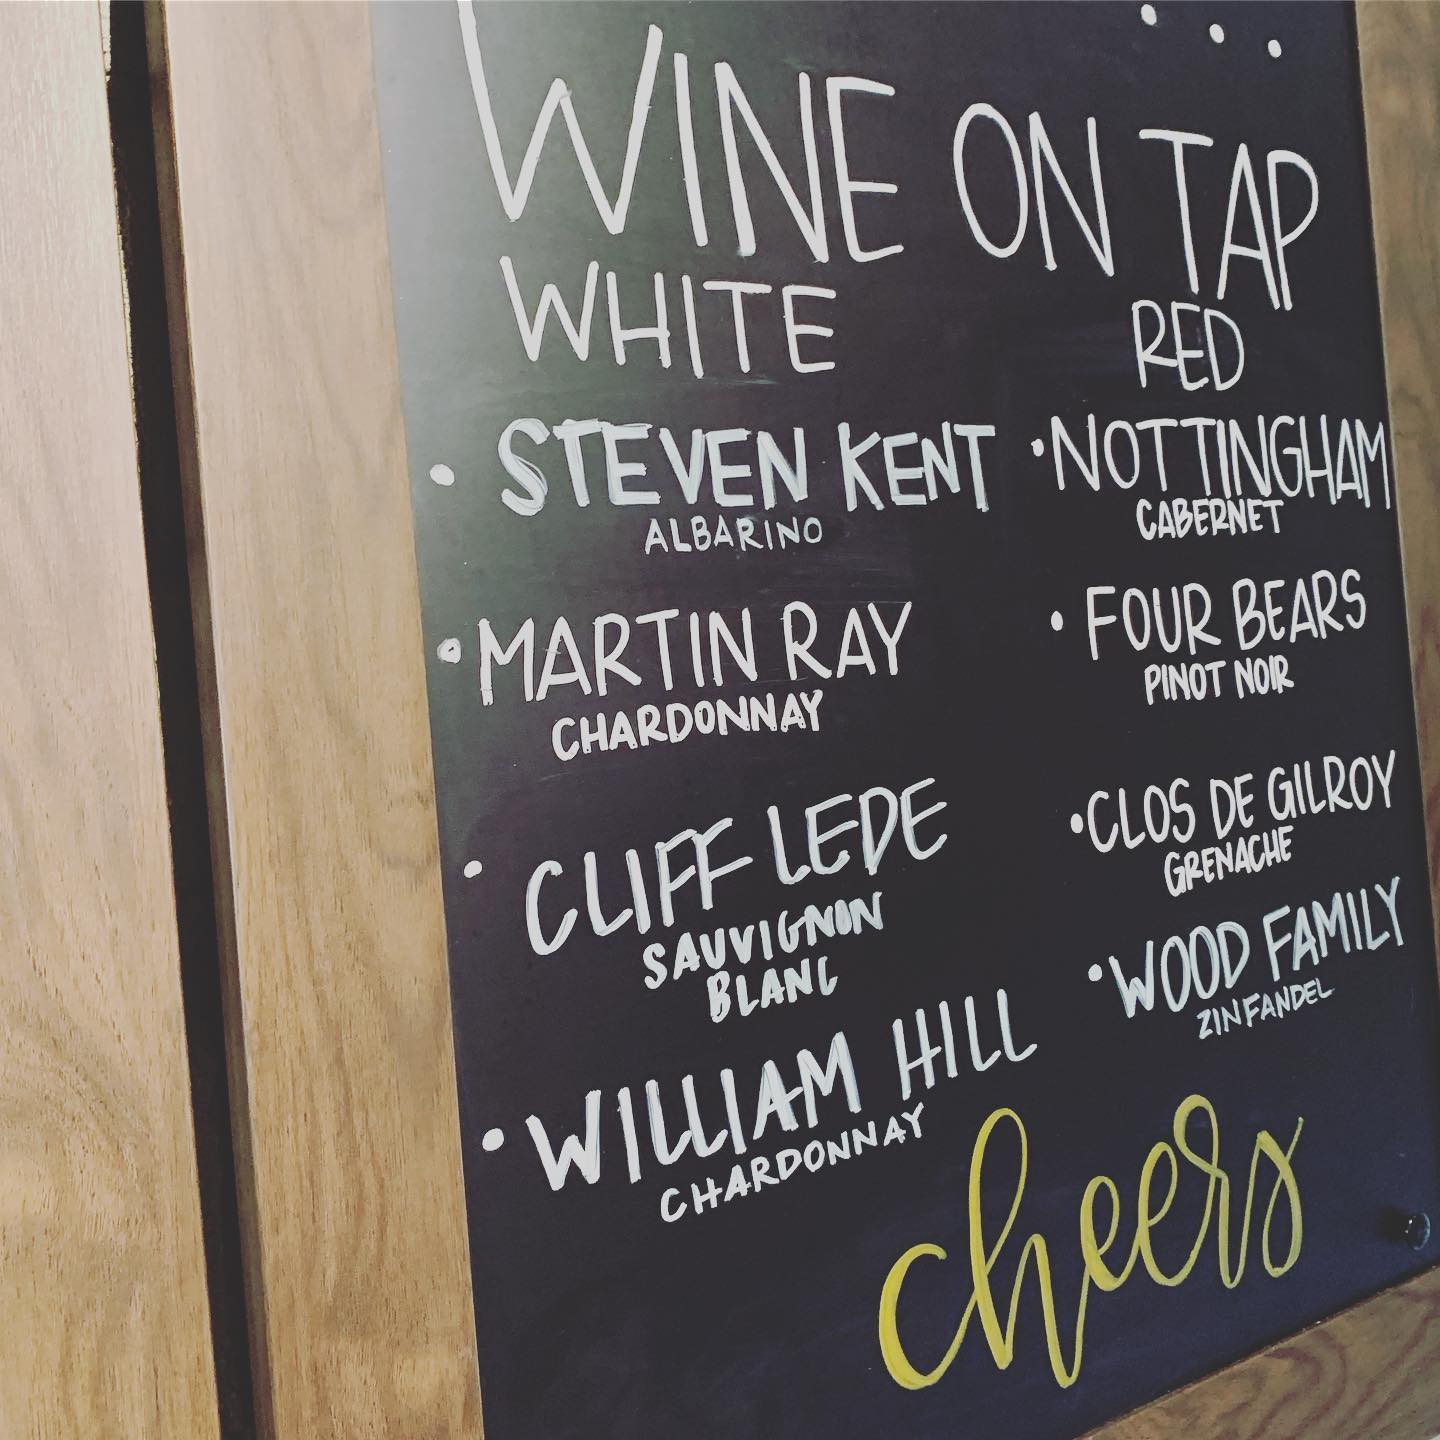 WINE ON TAP
WHITE
• STEVEN KENT
ALBARINO
• MARTIN RAY
CHARDONNAY
• CLIFF LEDE
SAUVIGNON
BLANC
• WILLIAM HILL
CHARDONNAY
RED
• NOTTINGHAM
CABERNET
• FOUR BEARS
PINOT NOIR
• CLOS DE GILROY
GRENACHE
• WOOD FAMILY
ZINFANDEL
cheers